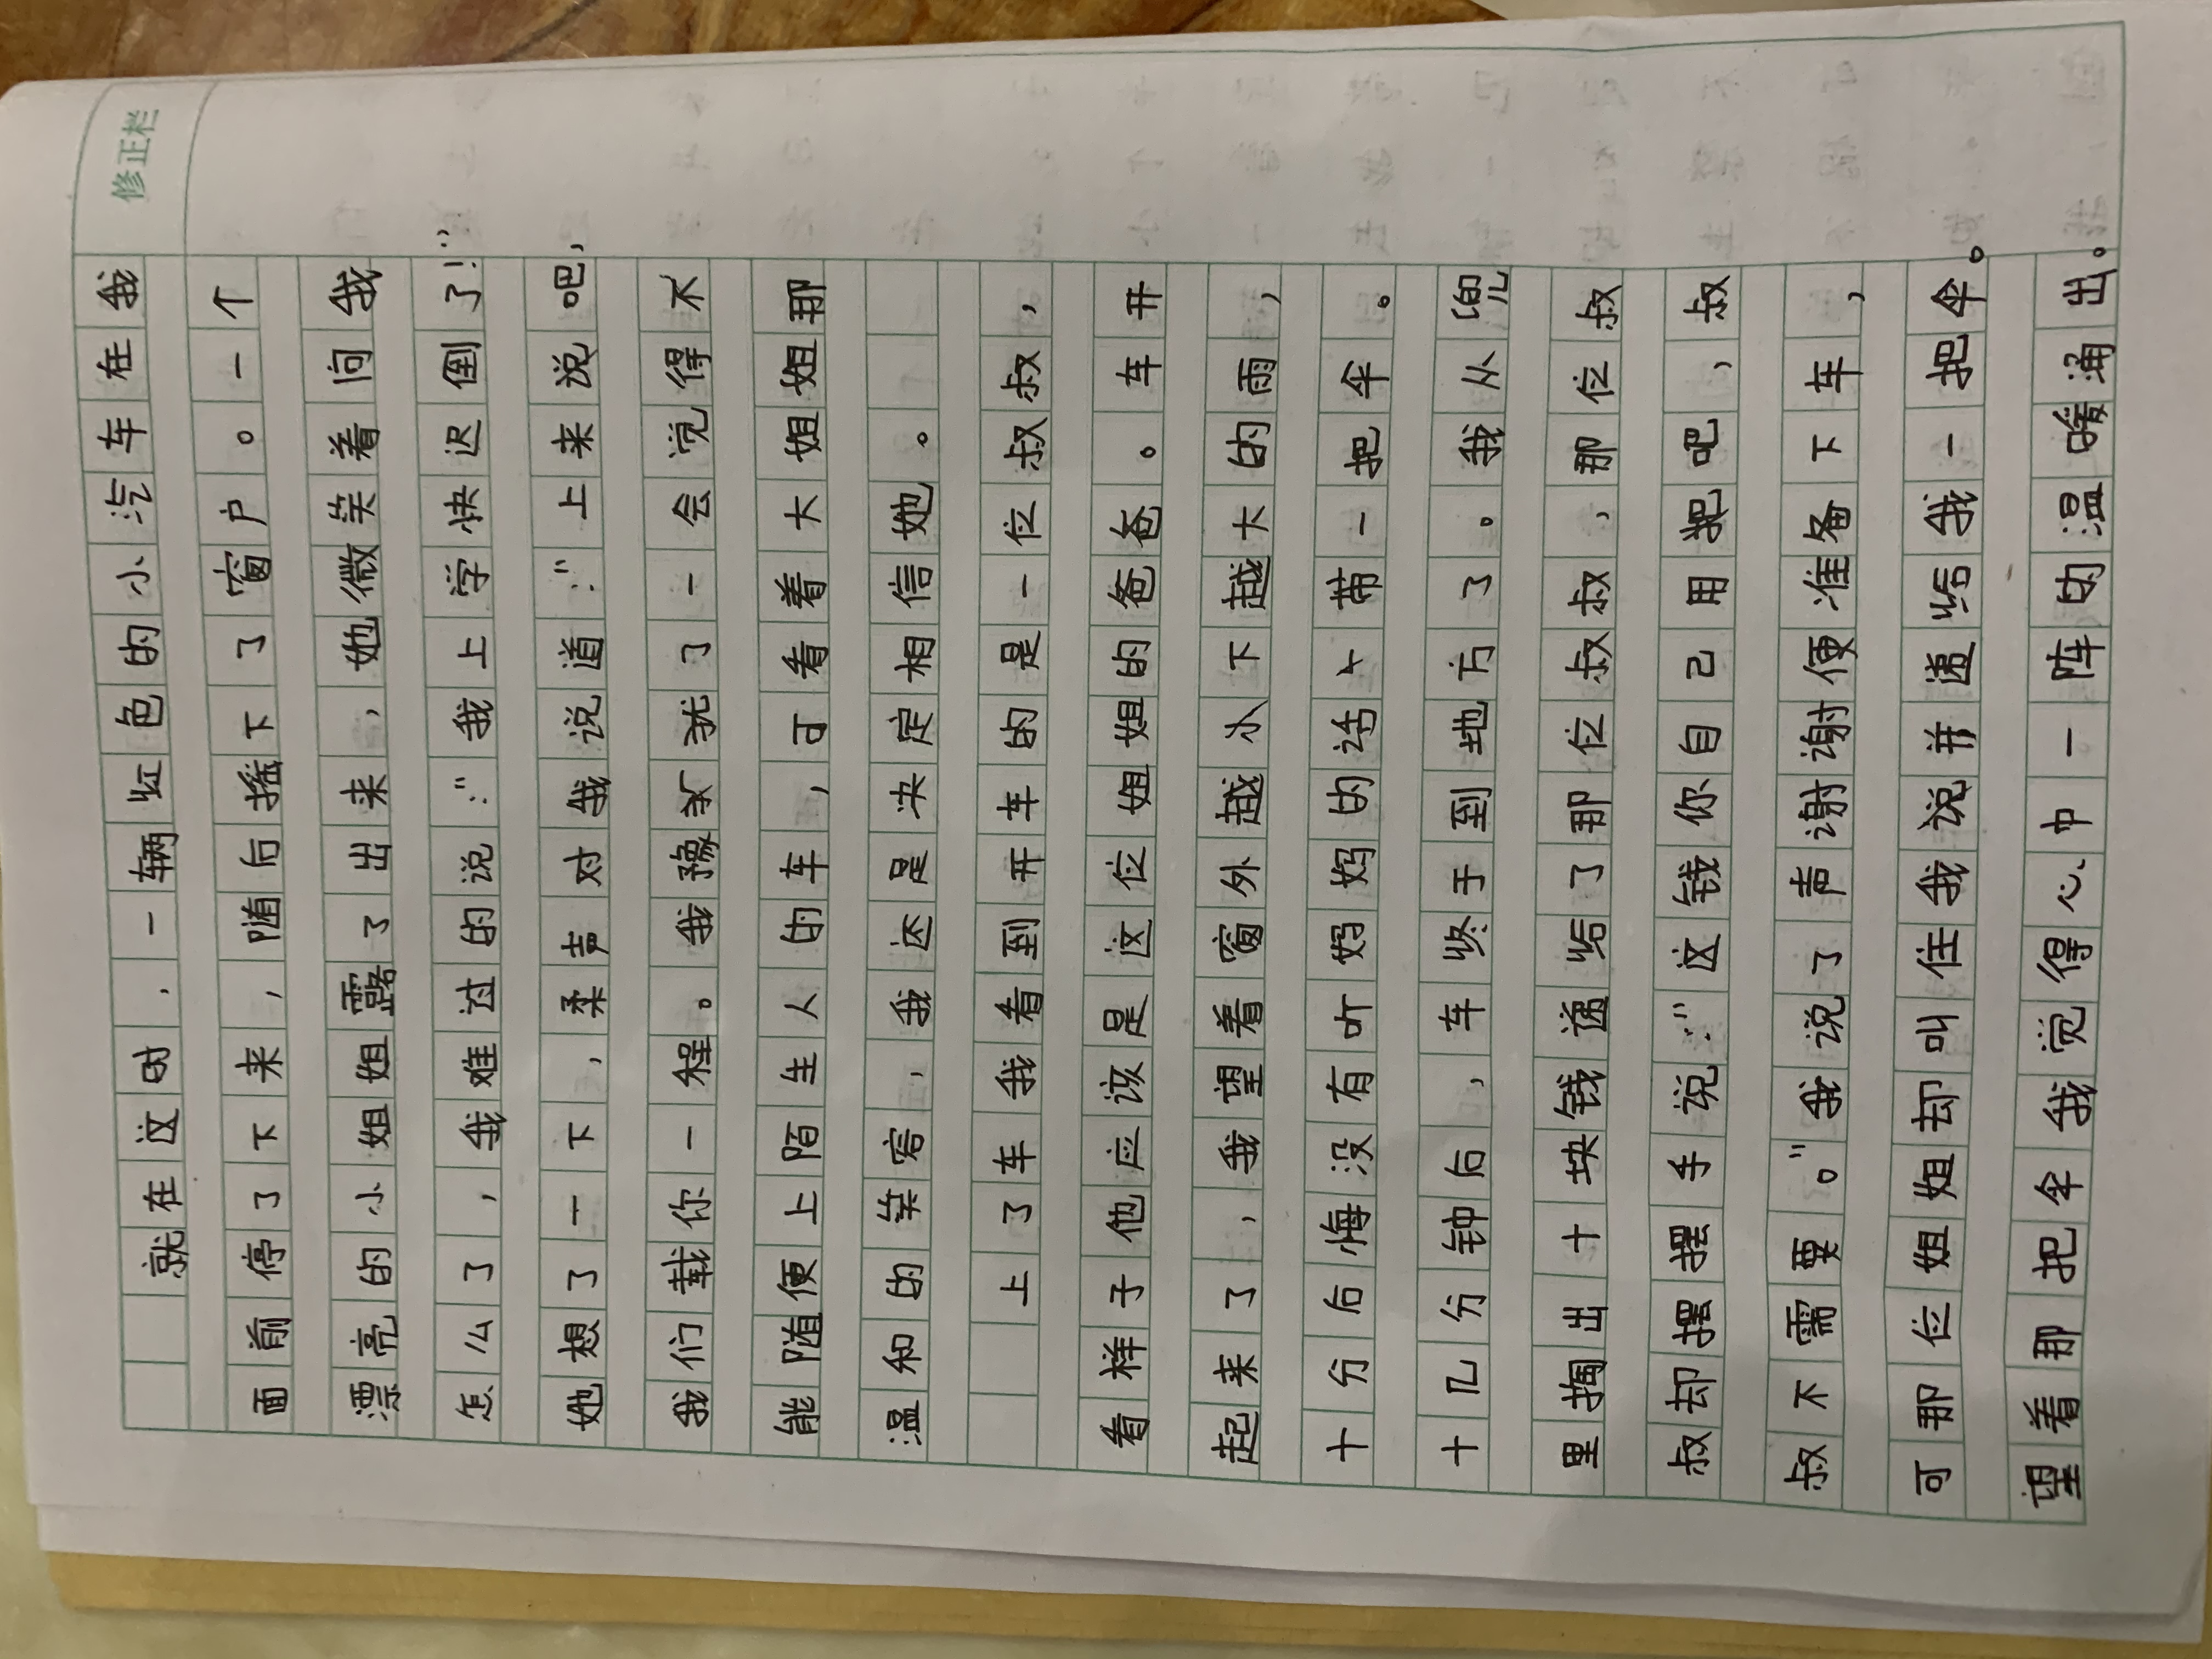 修正栏
就在这时，一辆红色的小汽车在我
面前停了下来，随后摇下了窗户。一个
漂亮的小姐姐露了出来，她微笑着问我
怎么了，我难过的说："我上学快迟到了！"
她想了一下，柔声对我说道："上来说吧，
我们载你一程。我豫犹了一会觉得不
能随便上陌生人的车，可看着大姐姐那
温和的笑容，我还是决定相信她。
上了车我看到开车的是一位叔叔，
看样子他应该是这位姐姐的爸爸。车开
起来了，我望着窗外越小下越大的雨，
十分后悔没有听妈妈的话带一把伞。
十几分钟后，车终于到地方了。我从兜
里掏出十块钱递给了那位叔叔，那位叔
叔却摆摆手说："这钱你自己用把吧，叔
叔不需要。"我说了声谢谢便准备下车，
可那位姐姐却叫住我说并递给我一把伞。
望着那把伞我觉得心中一阵的温暖涌出。